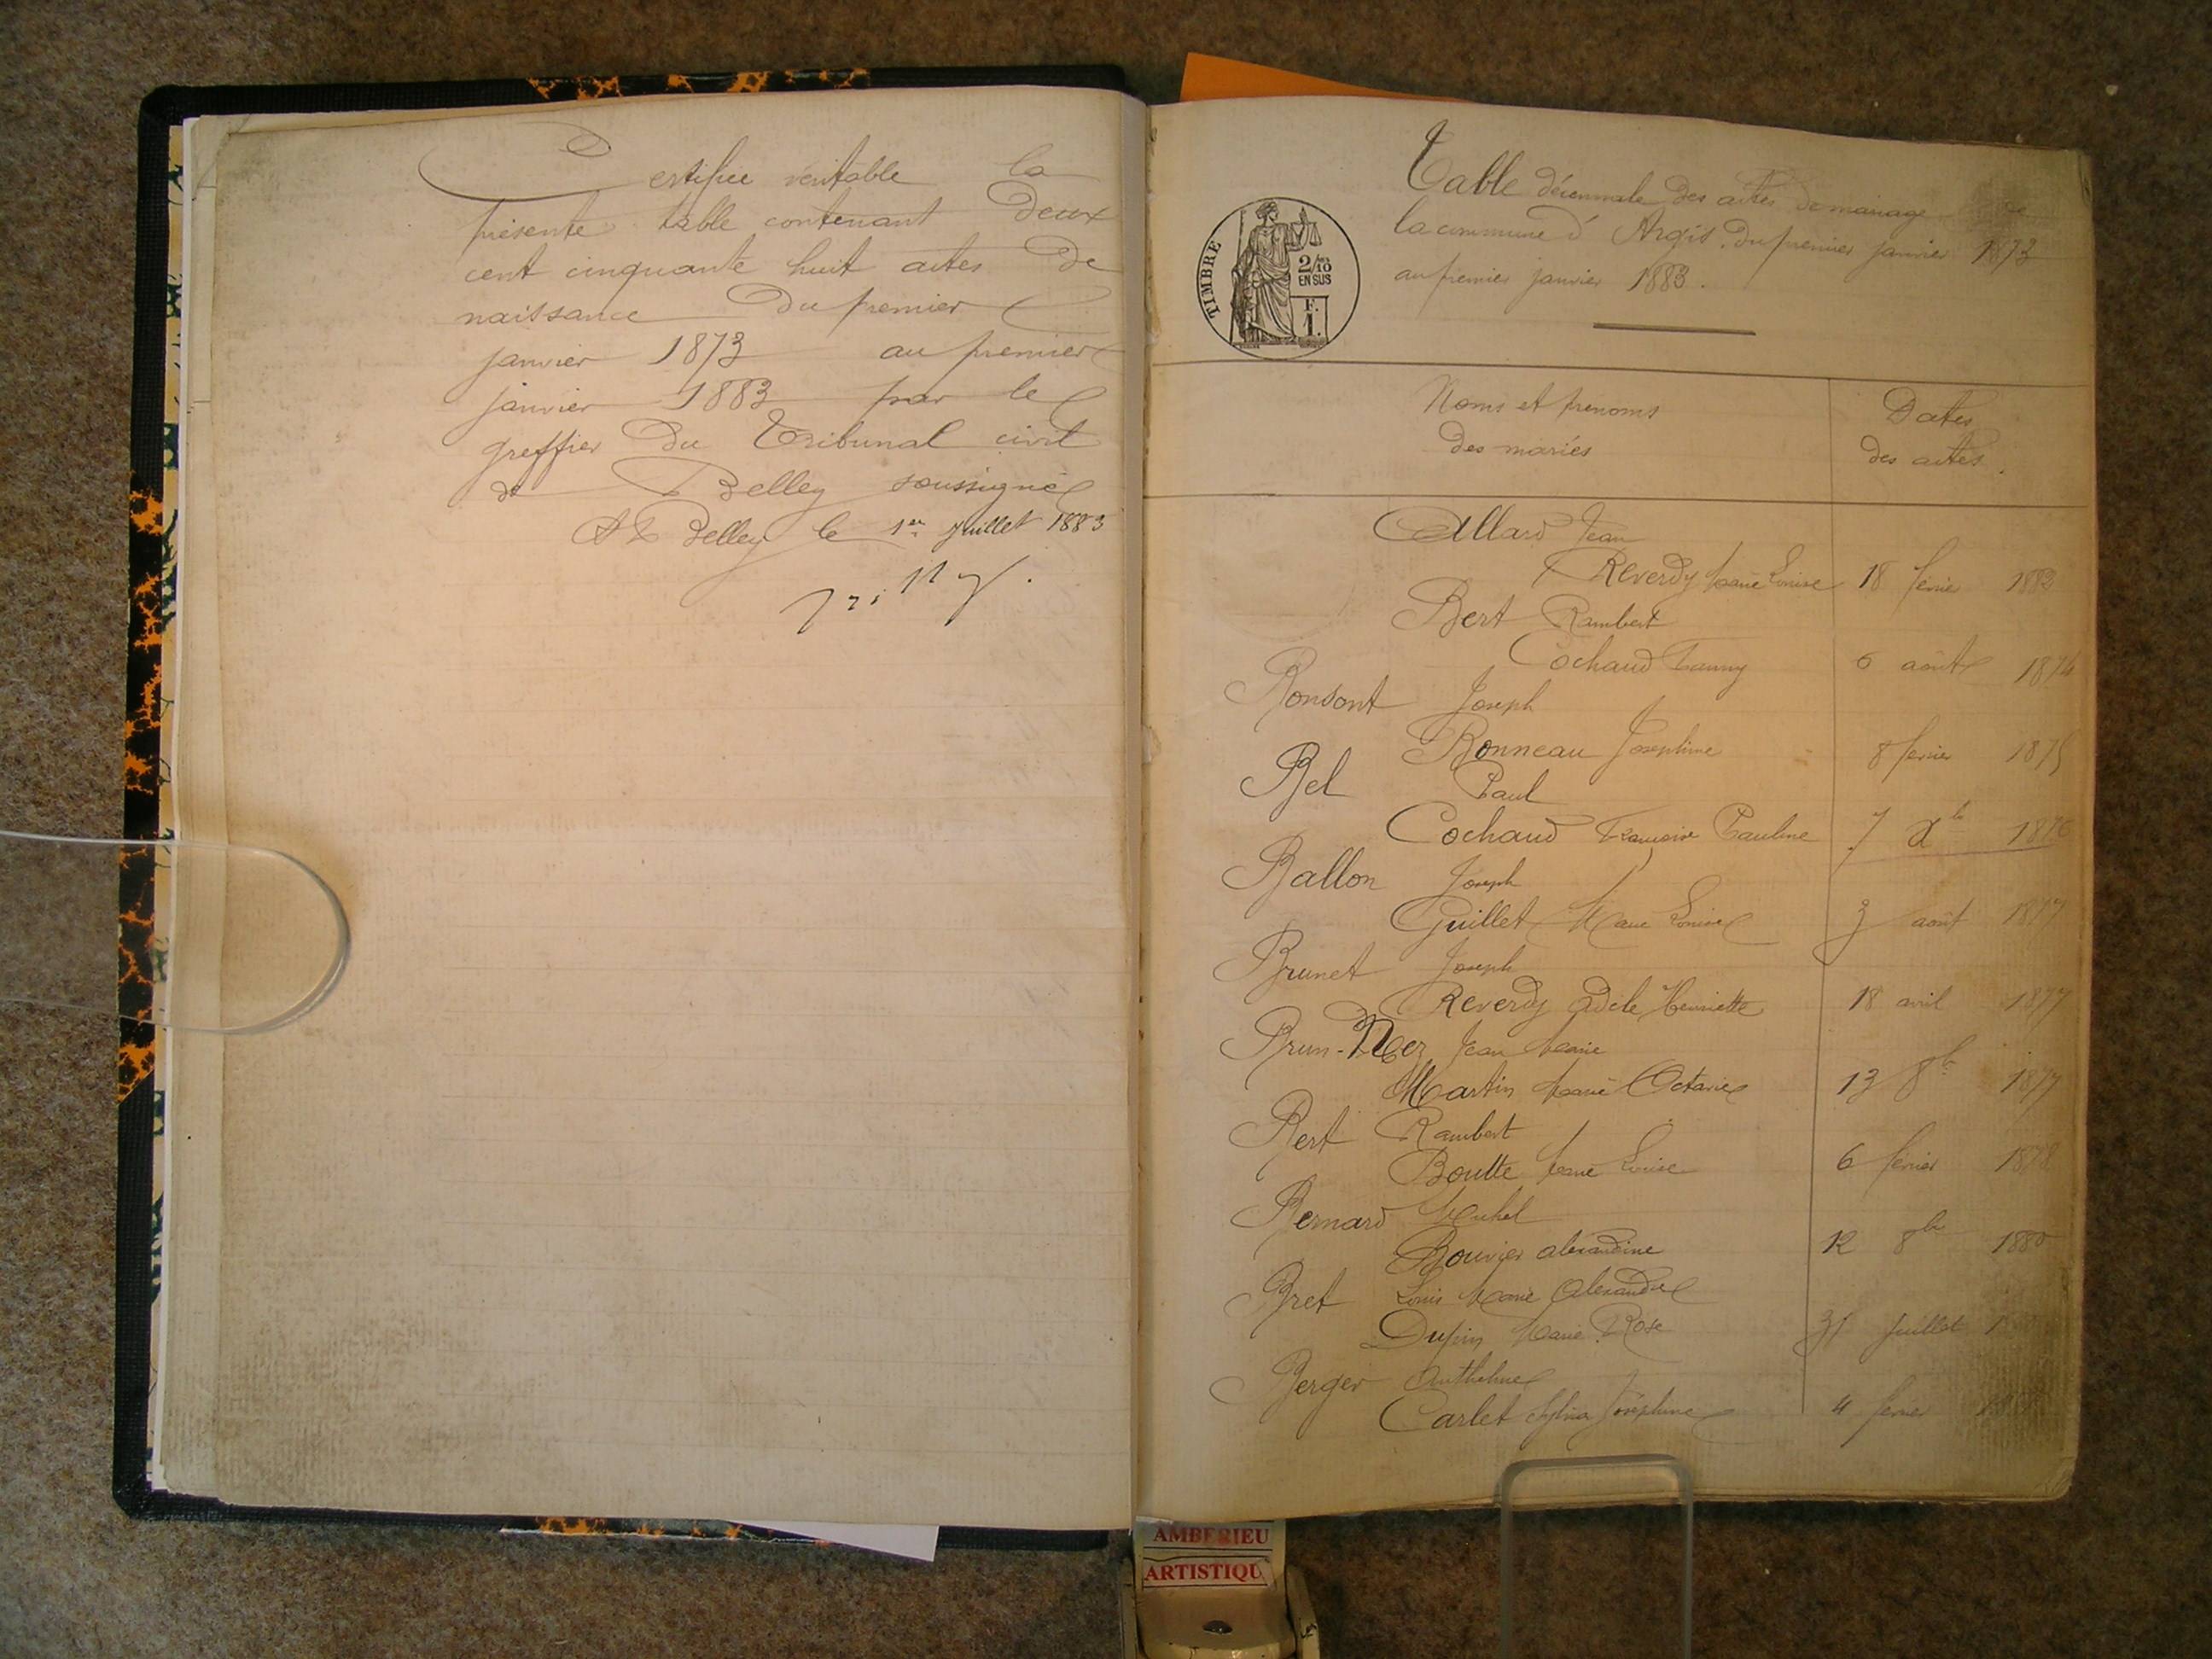 Certifiée véritable la
présente table contenant deux
cent cinquante huit actes de
naissance du premier
janvier 1873 au premier
janvier 1883 par le
greffier du Tribunal civil
de Belley soussigné
Belley le 1er Juillet 1883
Table décennale des actes de mariage de
la commune d'Argis. du premier janvier 1873
au premier janvier 1883.
TIMBRE
2/10
EN SUS
F.
1.
Noms et prénoms
des mariés
Dates
des actes.
Allard Jean
Reverdy Marie Louise 18 février
Bert Rambert
Cochaud Fanny 6 août 1874
Ronsont Joseph
Bonneau Joséphine 8 février 1875
Bel Paul
Cochaud Françoise Pauline 7 Xbre
Ballon Joseph
Guillet Marie Louise 3 août 1877
Brunet Joseph
Reverdy Adèle Henriette 18 avril 1877
Brun-Nez Jean Marie
Martin Marie Octavie 13 8bre 1877
Bert Rambert
Boutte Marie Louise 6 février 1878
Bernard Michel
Bouvier alexandrine 12 8bre 1880
Bret Louis Marie Alexandre
Dupin Marie Rose 31 juillet
Berger Anthelme
Carlet Sylvia Joséphine 4 février
AMBERIEU
ARTISTIQU